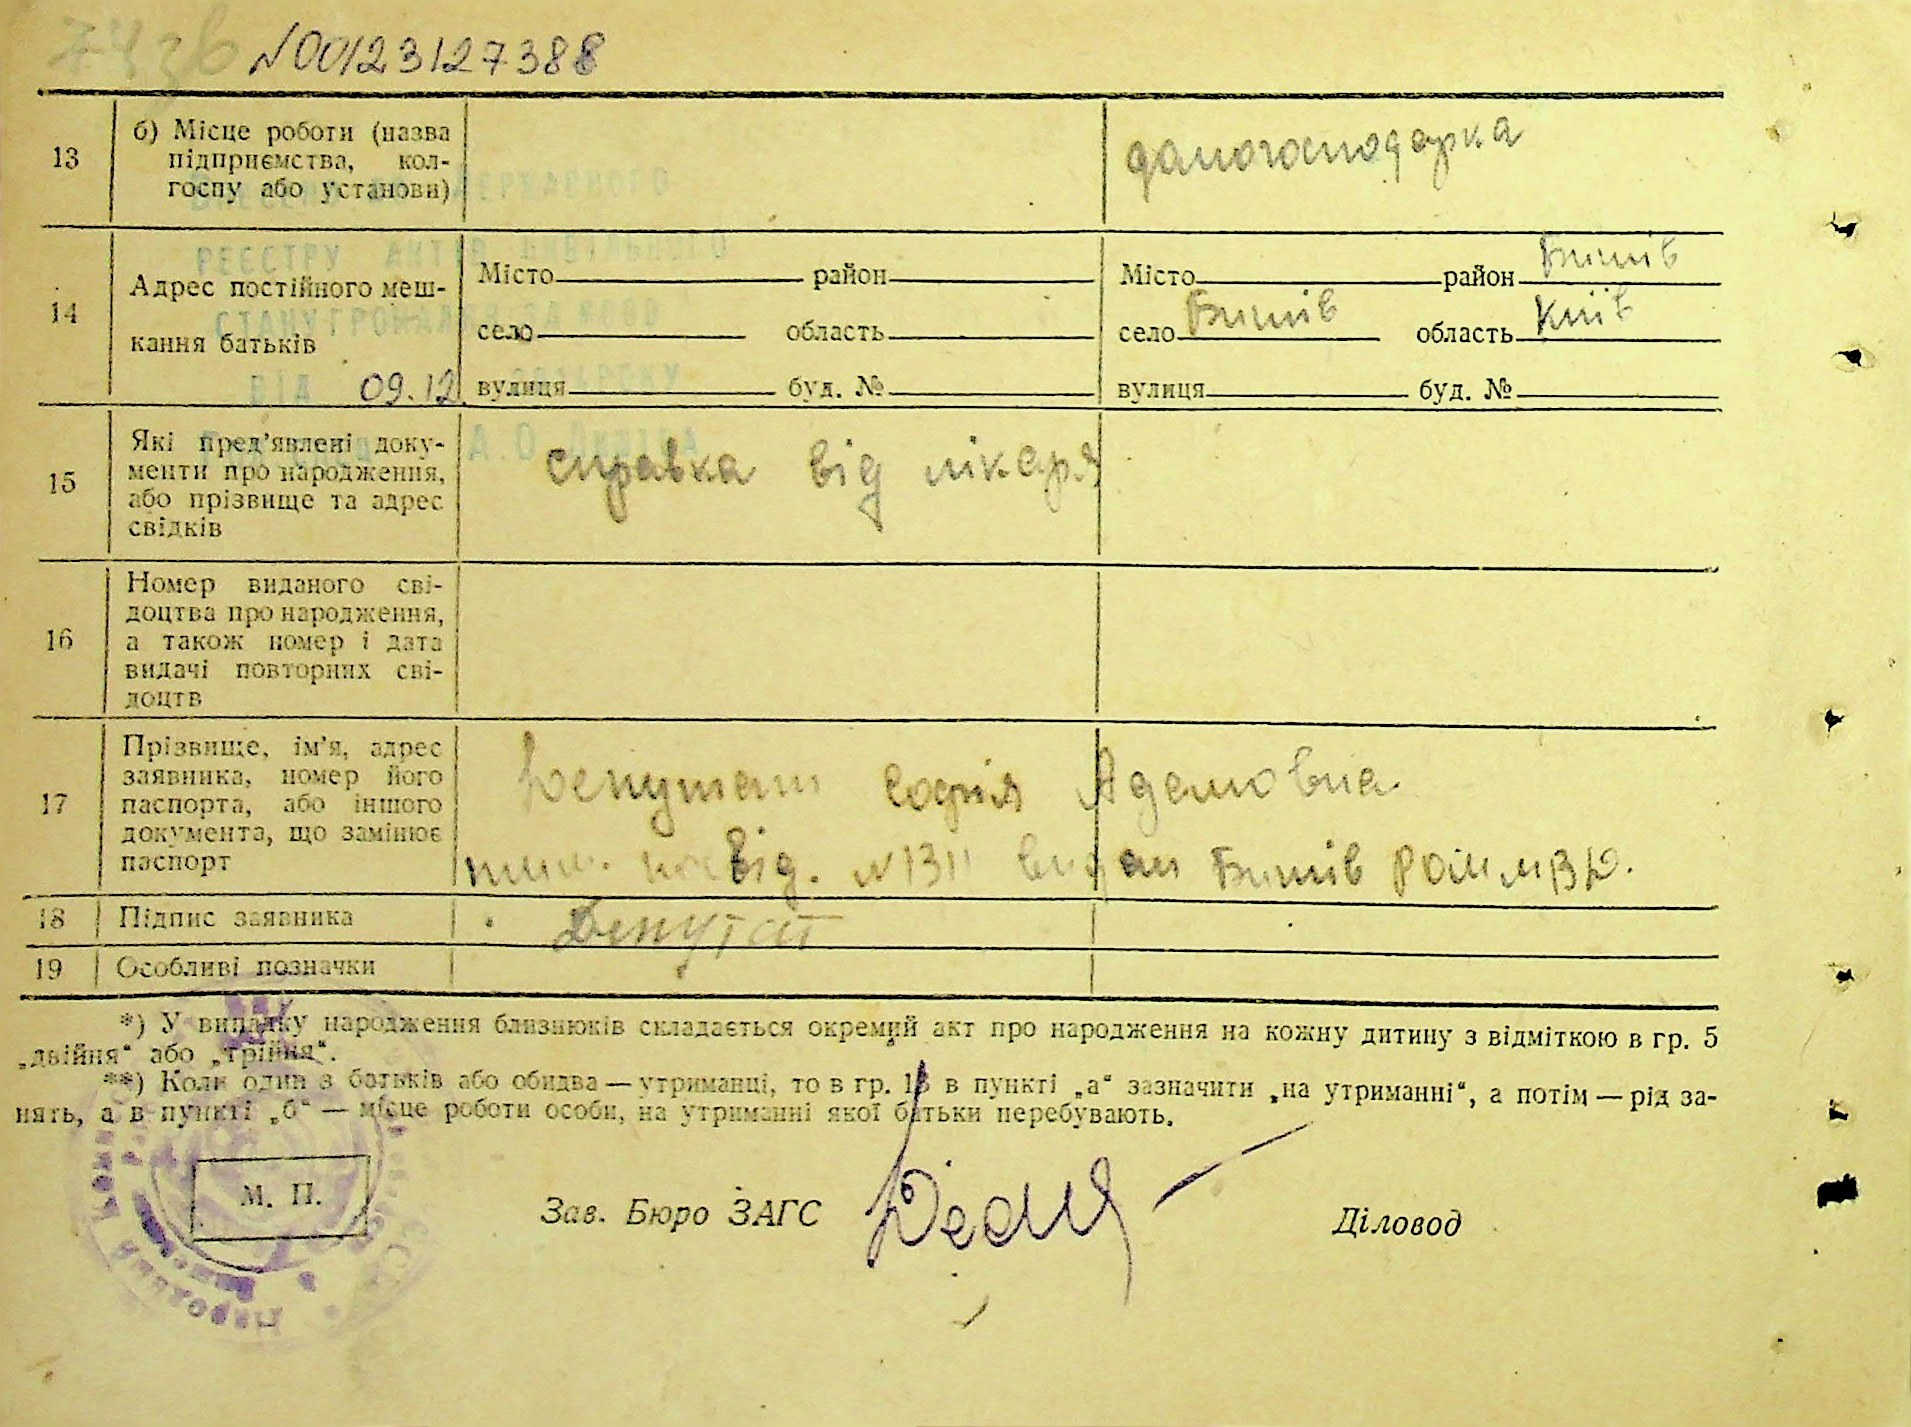 N00123127388
13 б) Місце роботи (назва
підприємства, кол-
госпу або установи)
домогосподарка
РЕЄСТРУ АКТІВ ЦИВІЛЬНОГО
СТАНУ ГРОМАДЯН ЗА №
ВІД 09.12
14 Адрес постійного меш-
кання батьків
Місто район
село область
вулиця буд. №
Місто район Бишів
село Бишів область Київ
вулиця буд. №
15 Які пред’явлені доку-
менти про народження,
або прізвище та адрес
свідків
справка від лікаря
16 Номер виданого сві-
доцтва про народження,
а також номер і дата
видачі повторних сві-
доцтв
17 Прізвище, ім’я, адрес
заявника, номер його
паспорта, або іншого
документа, що замінює
паспорт
Депутат Софія Адамовна
тим. посвід. N 1311 видан Бишів
18 Підпис заявника Депутат
19 Особливі позначки
*) У випадку народження близнюків складається окремий акт про народження на кожну дитину з відміткою в гр. 5
„двійня“ або „трійня“.
**) Коли один з батьків або обидва — утриманці, то в гр. 13 в пункті „а“ зазначити „на утриманні“, а потім — рід за-
нять, а в пункті „б“ — місце роботи особи, на утриманні якої батьки перебувають.
М. П.
Зав. Бюро ЗАГС
Діловод